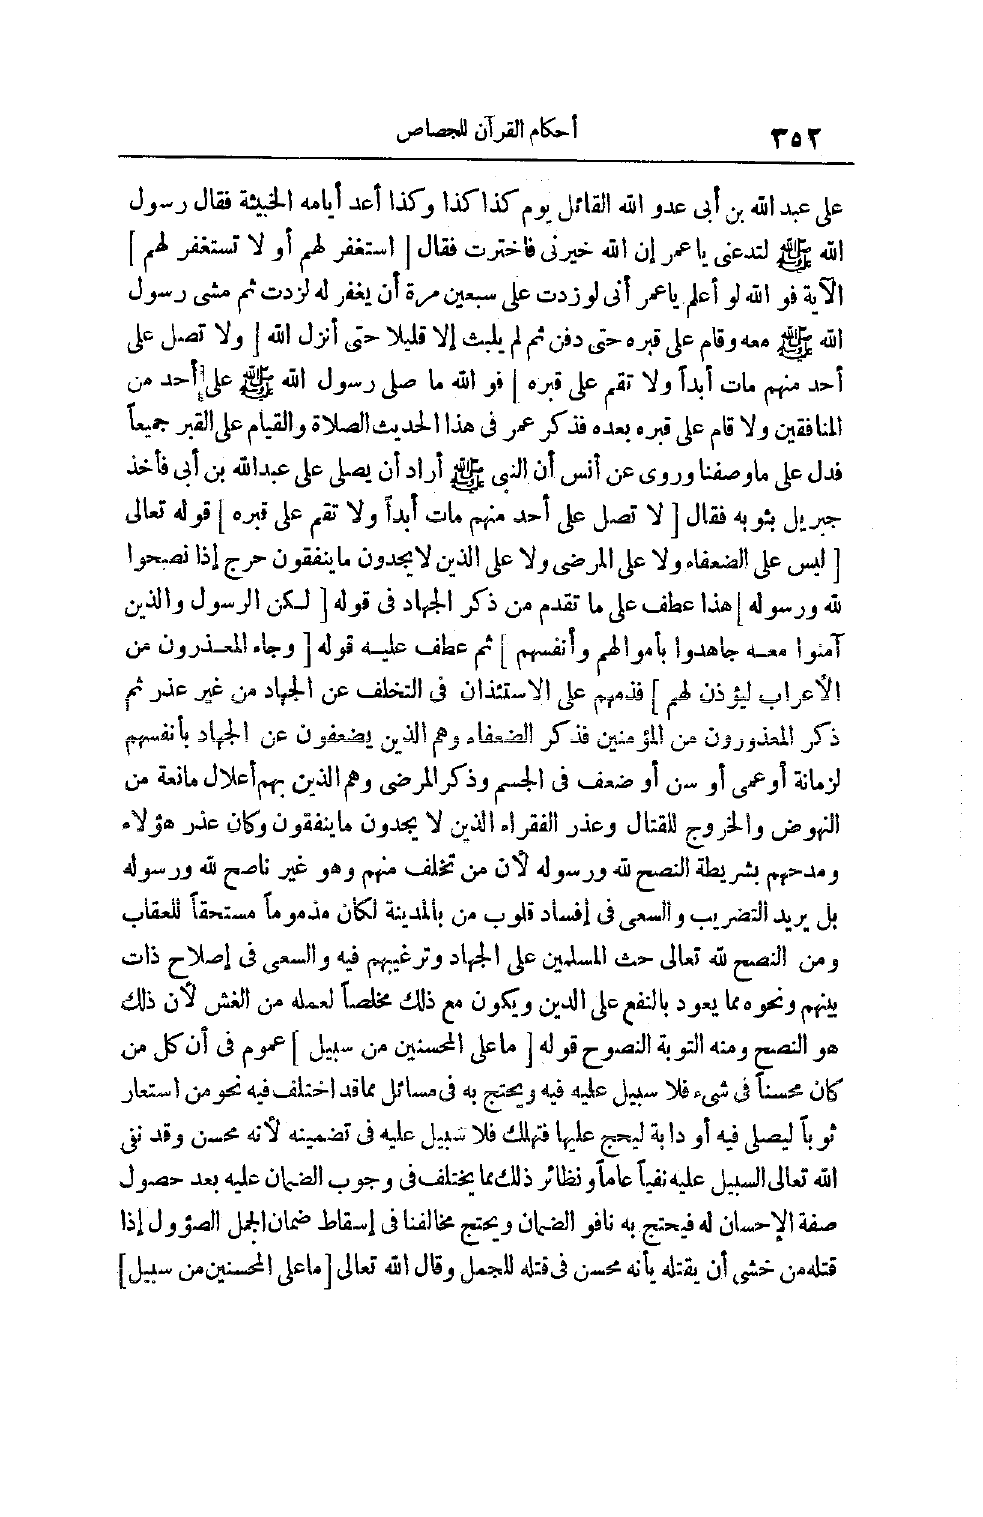 ٣٥٢
أحكام القرآن للجصاص
على عبد الله بن أبى عدو الله القائل يوم كذا كذا وكذا أعد أيامه الخبيثة فقال رسول
الله ﷺ لتدعنى ياعمر إن الله خيرنى فاخترت فقال [ استغفر لهم أو لا تستغفر لهم ]
الآية فو الله لو أعلم ياعمر أنى لو زدت على سبعين مرة أن يغفر له لزدت ثم مشى رسول
الله ﷺ معه وقام على قبره حتى دفن ثم لم يلبث إلا قليلا حتى أنزل الله [ ولا تصل على
أحد منهم مات أبداً ولا تقم على قبره ] فو الله ما صلى رسول الله ﷺ على أحد من
المنافقين ولا قام على قبره بعده فذكر عمر فى هذا الحديث الصلاة والقيام على القبر جميعاً
فدل على ماوصفنا وروى عن أنس أن النبى ﷺ أراد أن يصلى على عبدالله بن أبى فأخذ
جبريل بثوبه فقال [ لا تصل على أحد منهم مات أبداً ولا تقم على قبره ] قوله تعالى
[ ليس على الضعفاء ولا على المرضى ولا على الذين لايجدون ماينفقون حرج إذا نصحوا
لله ورسوله ] هذا عطف على ما تقدم من ذكر الجهاد فى قوله [ لكن الرسول والذين
آمنوا معه جاهدوا بأموالهم وأنفسهم ] ثم عطف عليه قوله [ وجاء المعذرون من
الأعراب ليؤذن لهم ] فذمهم على الاستئذان فى التخلف عن الجهاد من غير عذر ثم
ذكر المعذورون من المؤمنين فذكر الضعفاء وهم الذين يضعفون عن الجهاد بأنفسهم
لزمانة أو عمى أو سن أو ضعف فى الجسم وذكر المرضى وهم الذين بهم أعلال مانعة من
النهوض والخروج للقتال وعذر الفقراء الذين لا يجدون ماينفقون وكان عذر هؤلاء
ومدحهم بشريطة النصح لله ورسوله لأن من تخلف منهم وهو غير ناصح لله ورسوله
بل يريد التضريب والسعى فى إفساد قلوب من بالمدينة لكان مذموماً مستحقاً للعقاب
ومن النصح لله تعالى حث المسلمين على الجهاد وترغيبهم فيه والسعى فى إصلاح ذات
بينهم ونحوه مما يعود بالنفع على الدين ويكون مع ذلك مخلصاً لعمله من الغش لأن ذلك
هو النصح ومنه التوبة النصوح قوله [ ماعلى المحسنين من سبيل ] عموم فى أن كل من
كان محسناً فى شىء فلا سبيل عليه فيه ويحتج به فى مسائل مماقد اختلف فيه نحو من استعار
ثوباً ليصلى فيه أو دابة ليحج عليها فتهلك فلا سبيل عليه فى تضمينه لأنه محسن وقد نفى
الله تعالى السبيل عليه نفياً عاماً ونظائر ذلك مما يختلف فى وجوب الضمان عليه بعد حصول
صفة الإحسان له فيحتج به نافو الضمان ويحتج مخالفنا فى إسقاط ضمان الجمل الصؤول إذا
قتله من خشى أن يقتله بأنه محسن فى قتله للجمل وقال الله تعالى [ماعلى المحسنين من سبيل]